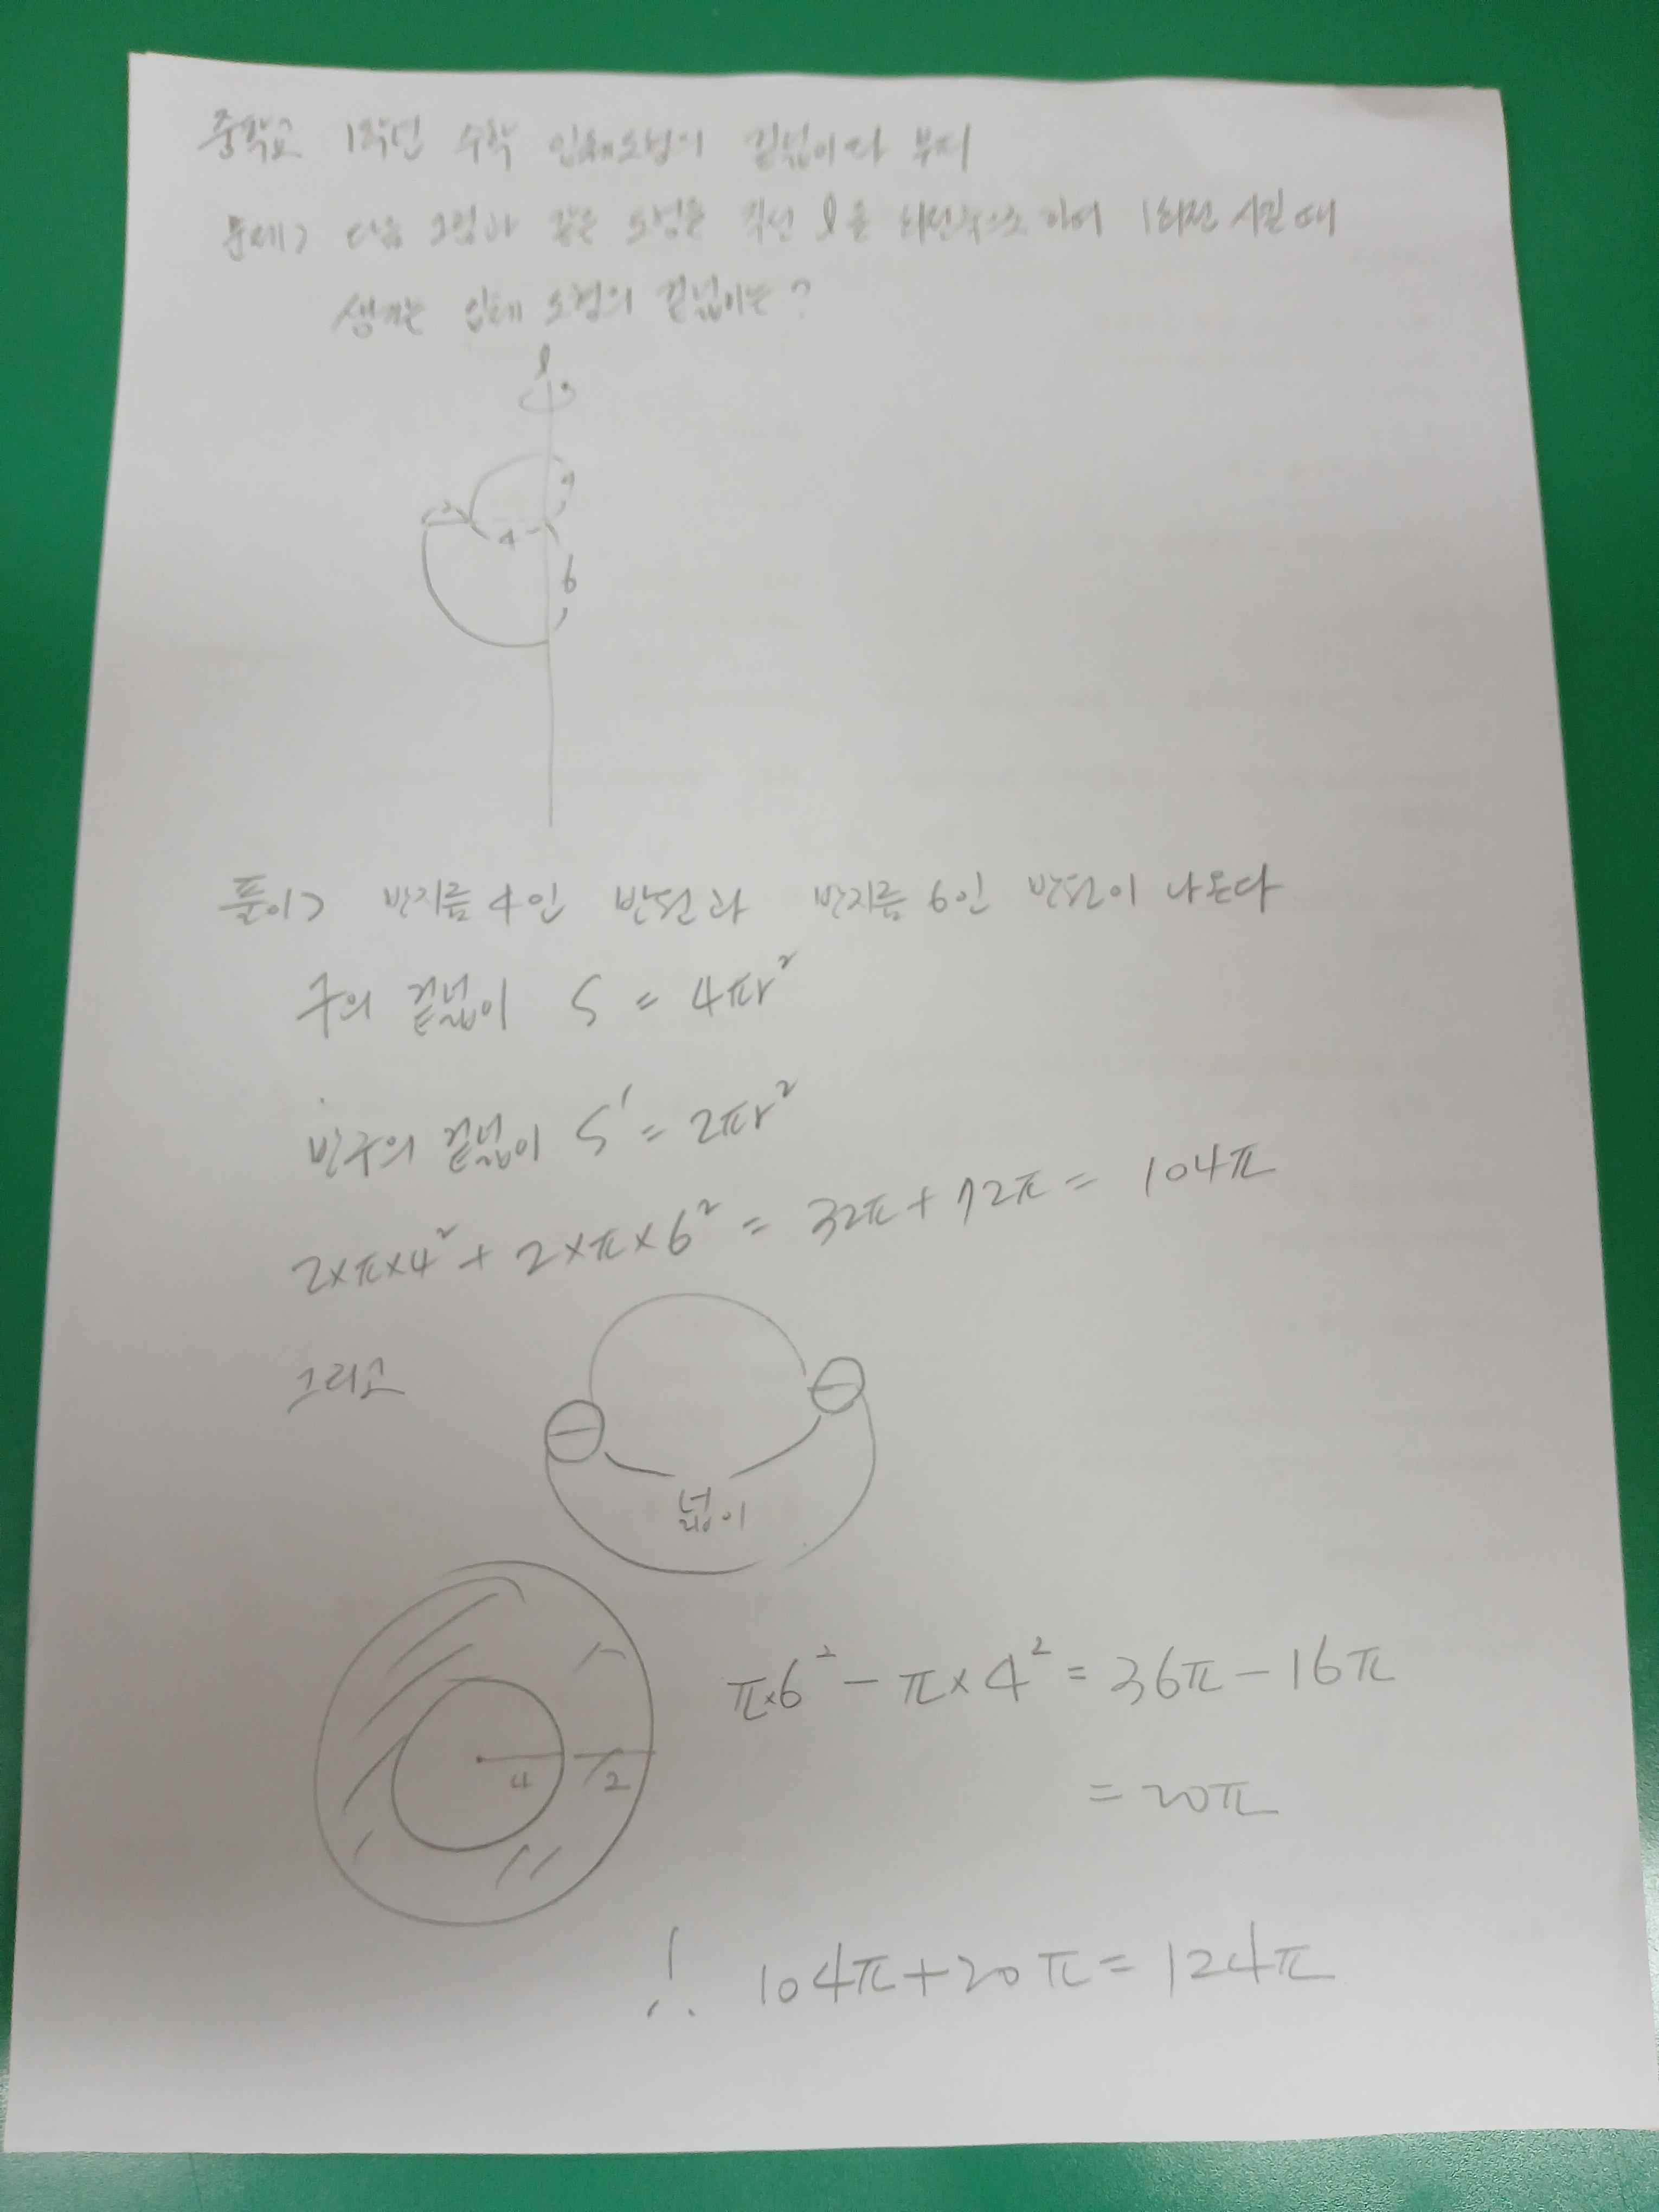 중학교 1학년 수학 입체도형의 겉넓이와 부피
문제> 다음 그림과 같은 도형을 직선 l을 회전축으로 하여 1회전 시킬 때
생기는 입체 도형의 겉넓이는?
l
2
4
6
풀이> 반지름 4인 반원과 반지름 6인 반원이 나온다
구의 겉넓이 S = 4πr²
반구의 겉넓이 S' = 2πr²
2×π×4² + 2×π×6² = 32π + 72π = 104π
그리고
넓이
π×6² - π×4² = 36π - 16π
4 2
= 20π
∴ 104π + 20π = 124π